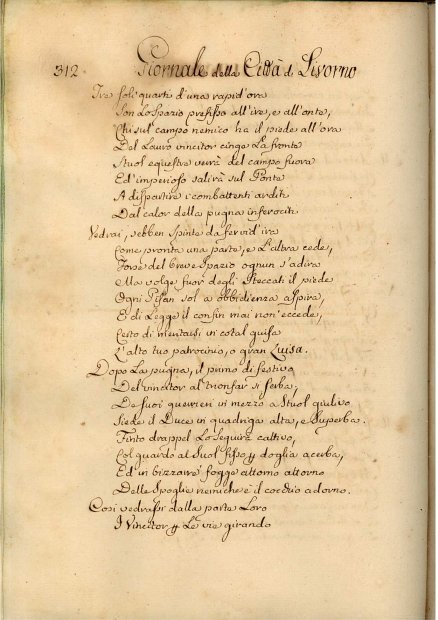 312 Giornale della Città di Livorno
Tre soli quarti d'una rapid'ora
Son lo spazio prefisso all'ire, e all'onte,
Chi sul campo nemico ha il piede all'ora
Del Lauro vincitor cinge la fronte
Stuol equestre verrà del campo fuora
Ed imperioso salirà sul Ponte
A dispartire i combattenti arditi
Dal calor della pugna inferociti
Vedrai, sebben spinte da fervid'ira
Come pronta una parte, e l'altra cede,
Forse del breve spazio ognun s'adira
Ma volge fuor degli steccati il piede
Ogni Pisan sol a obbidienza aspira,
E di Legge il confin mai non eccede,
Certo di meritarsi in cotal guisa
L'alto tuo patrocinio, o gran Luisa.
Dopo la pugna, il primo dì festivo
Del vincitor al trionfar si serba,
De suoi guerrieri in mezzo a stuol giulivo
Siede il Duce in quadriga alta, e superba.
Finto drappel lo seguirà cattivo,
Col guardo al suol fisso p doglia acerba,
Ed in bizzarre fogge attorno attorno
Delle spoglie nemiche è il cocchio adorno.
Così vedrassi dalla parte loro
I Vincitor p le vie girando